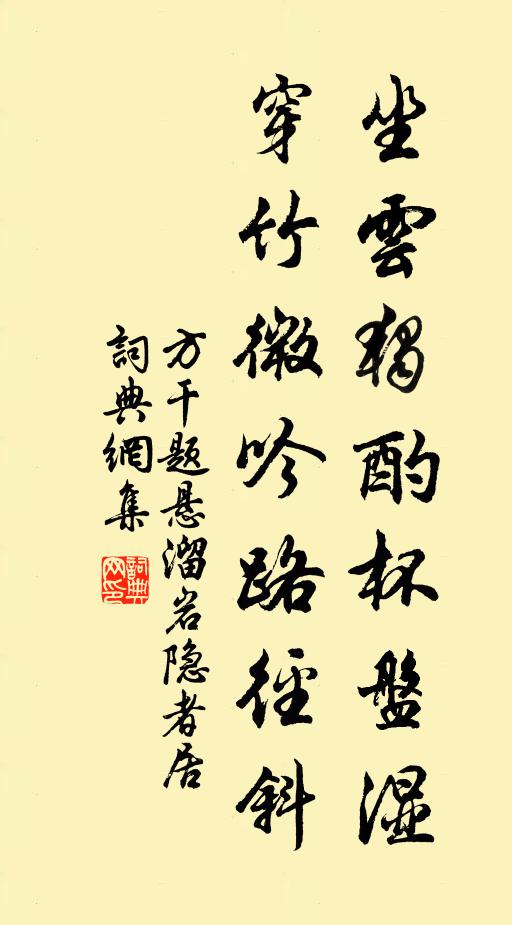 坐雲獨酌杯盤濕
穿竹微吟路徑斜
方干题悬溜岩隐者居
詞典網集
詞典网印